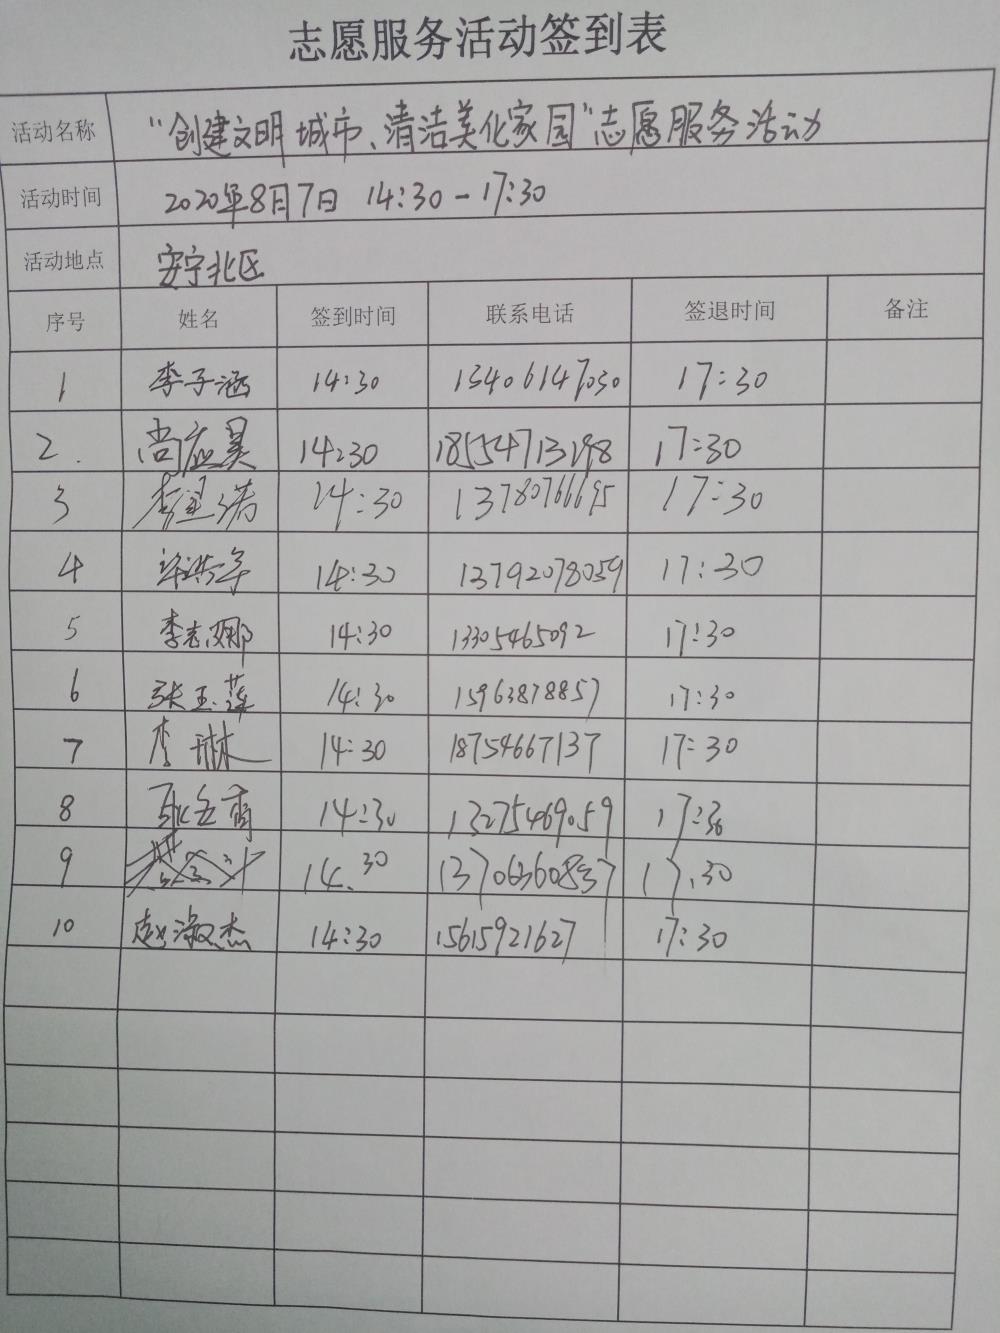 志愿服务活动签到表
活动名称 “创建文明城市、清洁美化家园”志愿服务活动
活动时间 2020年8月7日 14:30-17:30
活动地点 安宁北区
序号 姓名 签到时间 联系电话 签退时间 备注
1 李子涵 14:30 13406147030 17:30
2. 尚应昊 14:30 18554713298 17:30
3 14:30 13780766695 17:30
4 许洪年 14:30 13792078059 17:30
5 李志娜 14:30 13305465092 17:30
6 张玉莲 14:30 15963878857 17:30
7 李琳 14:30 18754667137 17:30
8 14:30 13275469059 17:30
9 14.30 13706360837 17.30
10 赵淑杰 14:30 15615921627 17:30